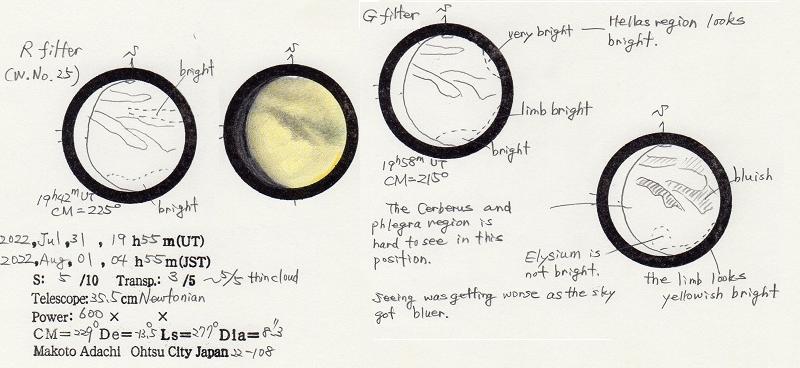 S
R filter
(W.No.25)
bright
19h42m UT
CM=225°
bright
S
G filter
very bright
Hellas region looks
bright.
limb bright
bright
19h58m UT
CM=215°
S
The Cerberus and
phlegra region is
hard to see in this
position.
bluish
Elysium is
not bright.
the limb looks
yellowish bright
Seeing was getting worse as the sky
got bluer.
2022, Jul, 31, 19 h55 m(UT)
2022, Aug, 01, 04 h55 m(JST)
S: 5 /10 Transp.: 3 /5 ~5/5 thin cloud
Telescope: 35.5cm Newtonian
Power: 600 × ×
CM=229° De=-13°.5 Ls=277° Dia=8".3
Makoto Adachi Ohtsu City Japan 22-108